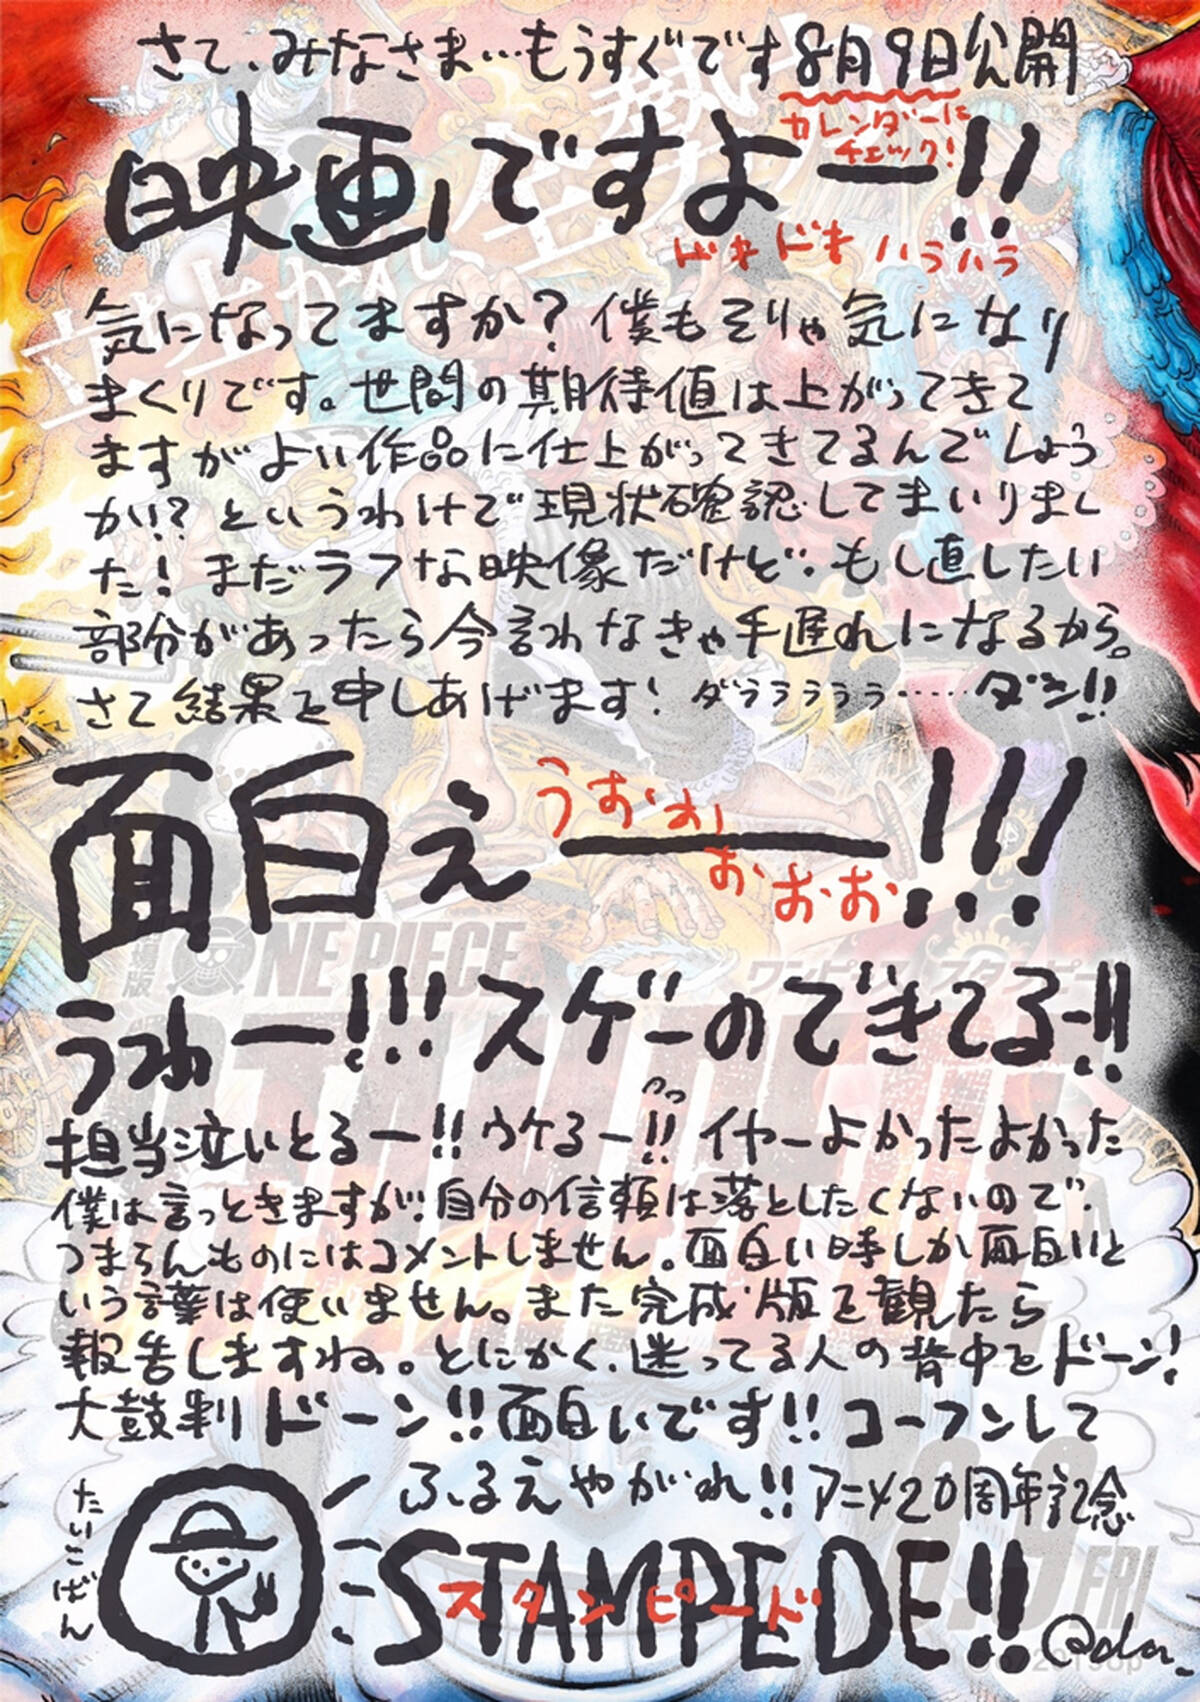 さて、みなさま…もうすぐです8月9日公開
カレンダーに
チェック!
映画ですよー!!
ドキドキハラハラ
気になってますか？僕もそりゃ気になり
まくりです。世間の期待値は上がってきて
ますがよい作品に仕上がってきてるんでしょう
か!?というわけで現状確認してまいりまし
た!まだラフな映像だけど、もし直したい
部分があったら今言わなきゃ手遅れになるから。
さて結果を申しあげます!ダララララララ……ダン!!
面白え――!!!
うおお
おおお
うわー!!!スゲーのできてるー!!
担当泣いとるー!!ウケるー!!イヤーよかったよかった
僕は言っときますが、自分の信頼は落としたくないので、
つまらんものにはコメントしません。面白い時しか面白いと
いう言葉は使いません。また完成版を観たら
報告しますね。とにかく、迷ってる人の背中をドーン!
太鼓判ドーン!!面白いです!!コーフンして
ふるえやがれ!!アニメ20周年記念
たいこばん
STAMPEDE!!
スタンピード
劇場版
ONE PIECE
ワンピース スタンピード
STAMPEDE
8.9 FRI